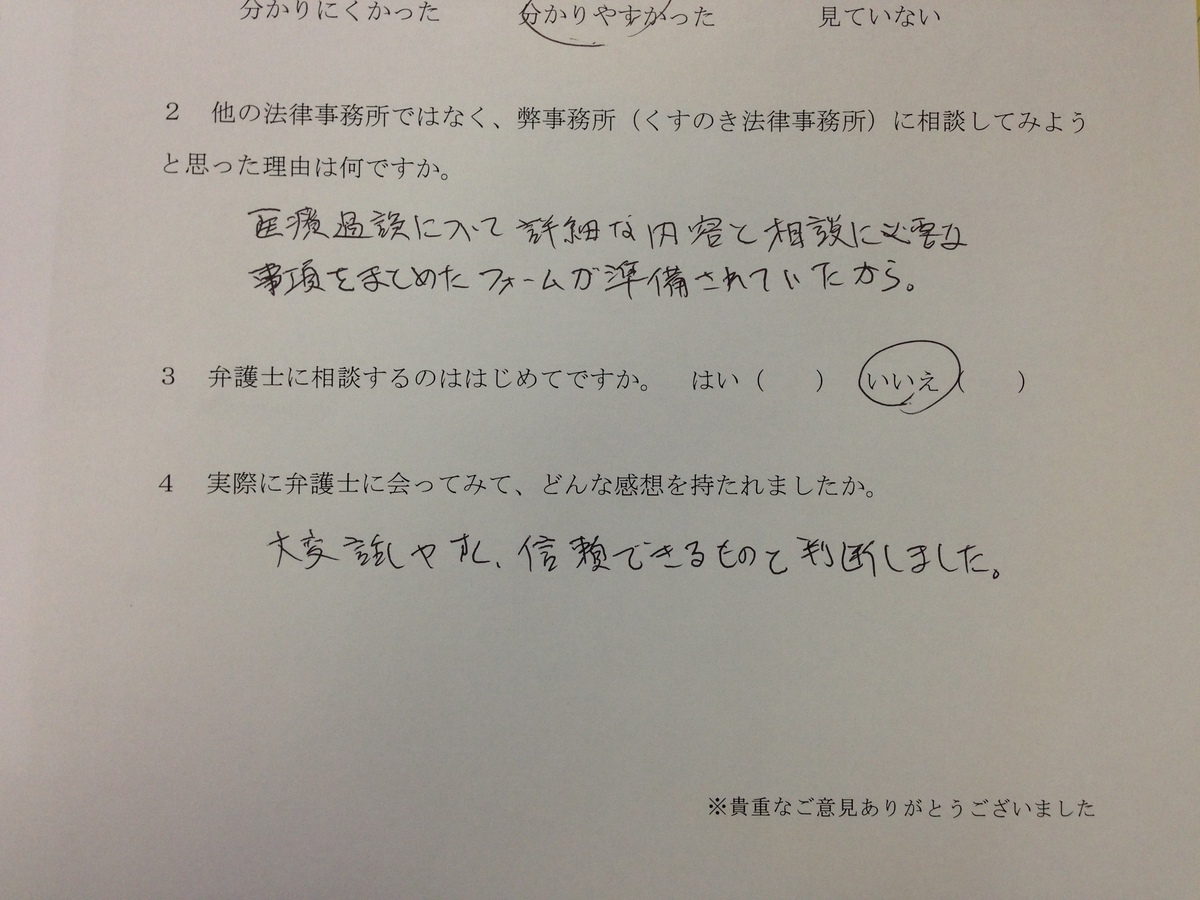 分かりにくかった　分かりやすかった　見ていない
２　他の法律事務所ではなく、弊事務所（くすのき法律事務所）に相談してみよう
と思った理由は何ですか。
医療過誤について詳細な内容と相談に必要な
事項をまとめたフォームが準備されていたから。
３　弁護士に相談するのははじめてですか。　はい（　　）　いいえ（　　）
４　実際に弁護士に会ってみて、どんな感想を持たれましたか。
大変話しやすく、信頼できるものと判断しました。
※貴重なご意見ありがとうございました